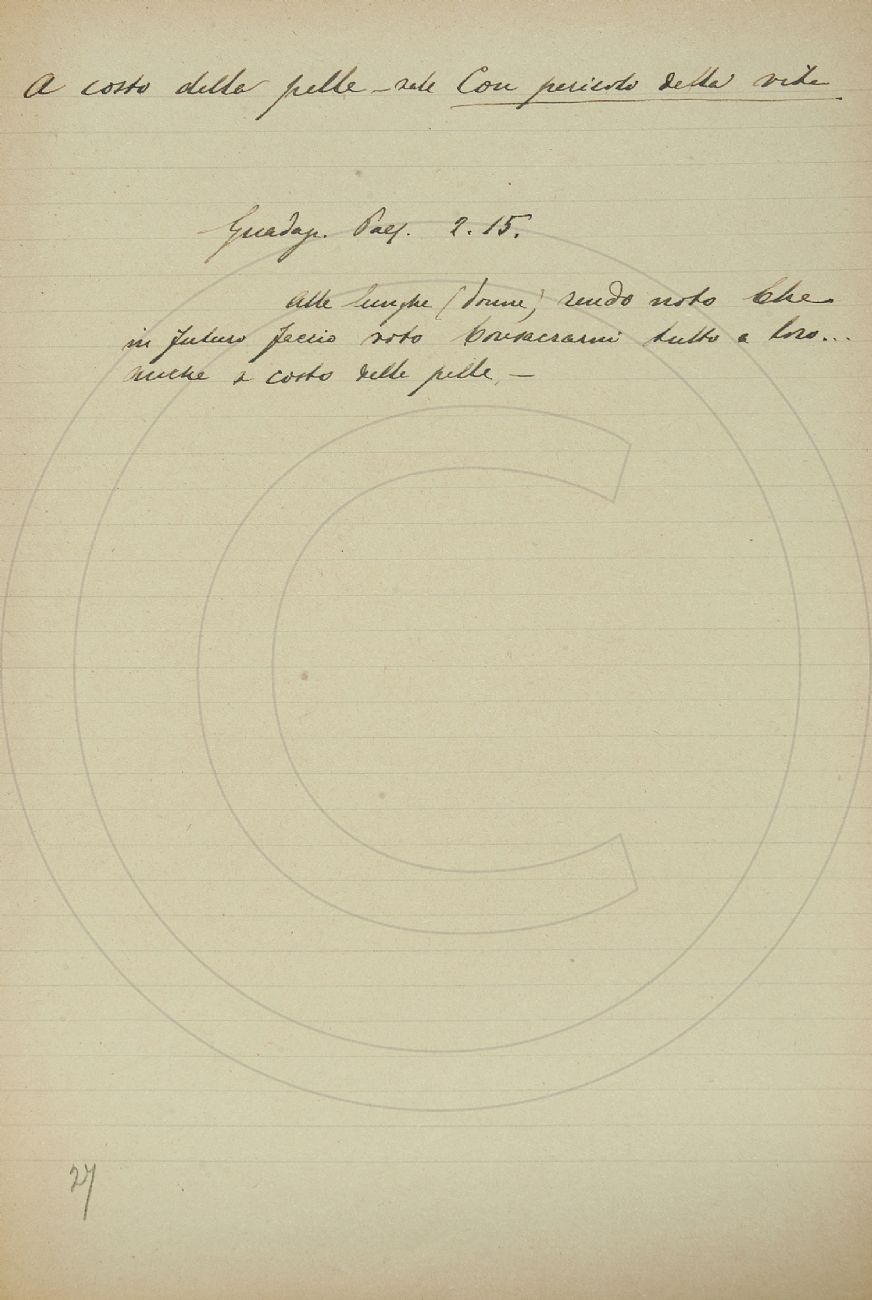 A costo della pelle - vale Con pericolo della vita
Guadag. Poes. 2. 15.
Alle lunghe (donne) rendo noto Che
in futuro faccio voto Consacrarmi tutto a loro...
anche a costo della pelle. —
27